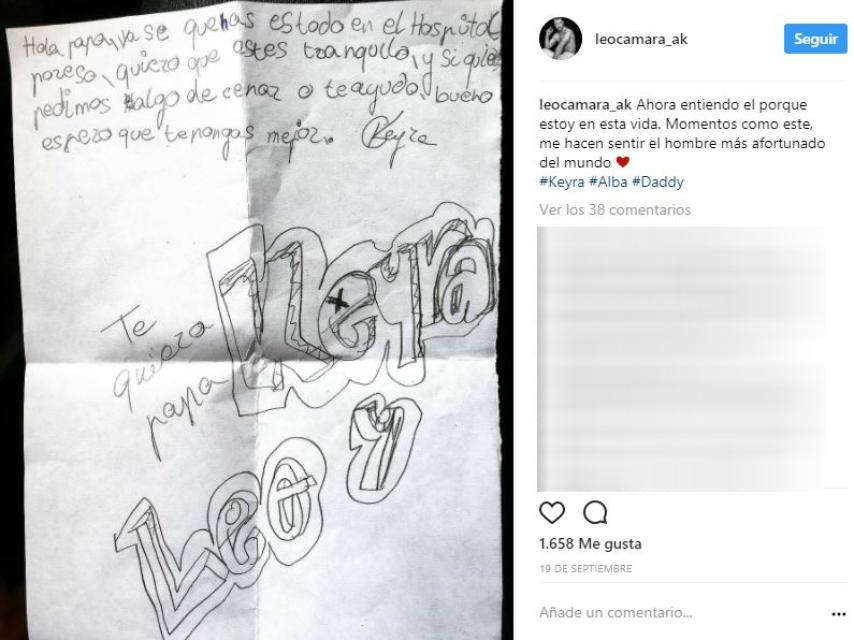 Hola papa, ya se que has estado en el Hospital
poreso, quiero que estes tranquilo, y si quie
pedimos algo de cenar o te ayudo, bueno
espero que tepongas mejor. Keyra
Te
quiero
papa
Keyra
y
Leo
leocamara_ak
Seguir
leocamara_ak Ahora entiendo el porque
estoy en esta vida. Momentos como este,
me hacen sentir el hombre más afortunado
del mundo ♥
#Keyra #Alba #Daddy
Ver los 38 comentarios
1.658 Me gusta
19 DE SEPTIEMBRE
Añade un comentario...